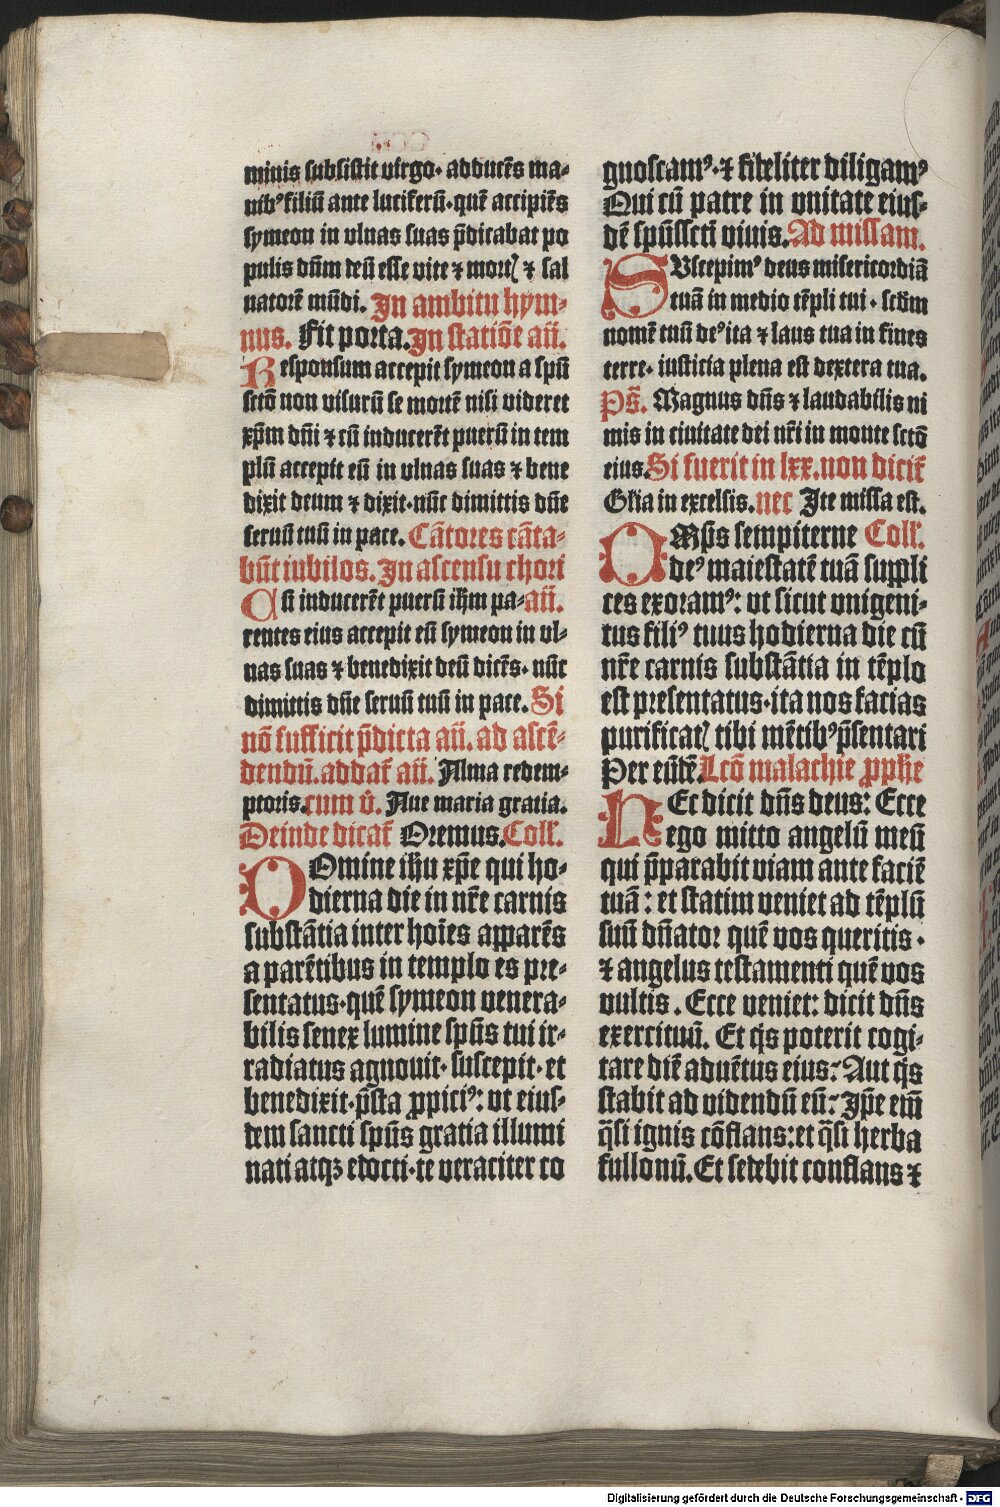 minis subsistit virgo· adducẽs ma⸗
nibꝰ filiũ ante luciferũ· quẽ accipiẽs
symeon in vlnas suas p̃dicabat po
pulis dñm deũ esse vite ⁊ mortꝭ ⁊ sal
uatorẽ mũdi. In ambitu hym⸗
nus. Fit porta. In statiõe añ.
Responsum accepit symeon a spũ
sctõ non visurũ se mortẽ nisi videret
xp̃m dñi ⁊ cũ inducerẽt puerũ in tem
plũ accepit eũ in vlnas suas ⁊ bene
dixit deum ⁊ dixit· nũc dimittis dñe
seruũ tuũ in pace. Cãtores cãta⸗
bũt iubilos. In ascensu chori
Cũ inducerẽt puerũ ihm̃ pa⸗ añ.
rentes eius accepit eũ symeon in vl⸗
nas suas ⁊ benedixit deũ dicẽs· nũc
dimittis dñe seruũ tuũ in pace. Si
nõ sufficit p̃dicta añ. ad ascẽ⸗
dendũ. addat̃ añ. Alma redem⸗
ptoris. cum v̂. Aue maria gratia.
Deinde dicat̃ Oremus. Coll̃.
DOmine ihũ xp̃e qui ho⸗
dierna die in nr̃e carnis
substãtia inter hoĩes apparẽs
a parẽtibus in templo es pre⸗
sentatus· quẽ symeon venera⸗
bilis senex lumine spũs tui ir⸗
radiatus agnouit· suscepit· et
benedixit· p̃sta ꝓpiciꝰ: vt eius⸗
dem sancti spũs gratia illumi
nati atqꝫ edocti· te veraciter co
gnoscamꝰ· ⁊ fideliter diligamꝰ
Qui cũ patre in vnitate eius⸗
dẽ spũssctĩ viuis. Ad missam.
SUscepimꝰ deus misericordiã
tuã in medio tẽpli tui· scd̃m
nomẽ tuũ deꝰ ita ⁊ laus tua in fines
terre· iusticia plena est dextera tua.
Ps̃. Magnus dñs ⁊ laudabilis ni
mis in ciuitate dei nr̃i in monte sctõ
eius. Si fuerit in lxx. non dicit̃
Glia in excelsis. nec Ite missa est.
OMp̃s sempiterne Coll̃.
deꝰ maiestatẽ tuã suppli
ces exoramꝰ: vt sicut vnigeni⸗
tus filiꝰ tuus hodierna die cũ
nr̃e carnis substãtia in tẽplo
est presentatus· ita nos facias
purificatꝭ tibi mẽtibꝰ p̃sentari
Per eũdẽ. Lcõ malachie ꝓph̃e
HEc dicit dñs deus: Ecce
ego mitto angelũ meũ
qui p̃parabit viam ante faciẽ
tuã: et statim veniet ad tẽplũ
suũ dñator quẽ vos queritis·
⁊ angelus testamenti quẽ vos
vultis. Ecce veniet: dicit dñs
exercituũ. Et q̃s poterit cogi⸗
tare diẽ aduẽtus eius? Aut q̃s
stabit ad videndũ eũ? Ip̃e em̃
q̃si ignis cõflans: et q̃si herba
fullonũ. Et sedebit conflans ⁊
Digitalisierung gefördert durch die Deutsche Forschungsgemeinschaft - DFG